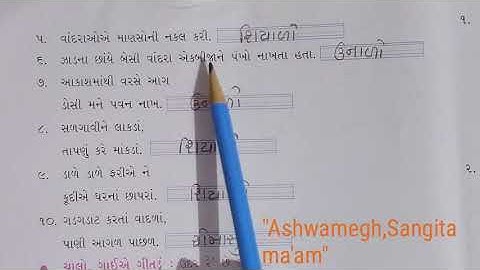 ૫. વાંદરાઓએ માણસોની નકલ કરી. શિયાળો
૬. ઝાડના છાંયે બેસી વાંદરા એકબીજાને પંખો નાખતા હતા. ઉનાળો
૭. આકાશમાંથી વરસે આગ
ડોસી મને પવન નાખ.
૮. સળગાવીને લાકડાં,
તાપણું કરે માકડાં. શિયાળો
૯. ડાળે ડાળે ફરીએ ને
કૂદીએ ઘરનાં છાપરાં. શિયાળો
૧૦. ગડગડાટ કરતાં વાદળાં,
પાણી આગળ પાછળ.
ચાલો, ગાઈએ ગીતડું :
૧.
૨.
"Ashwamegh,Sangita
ma'am"